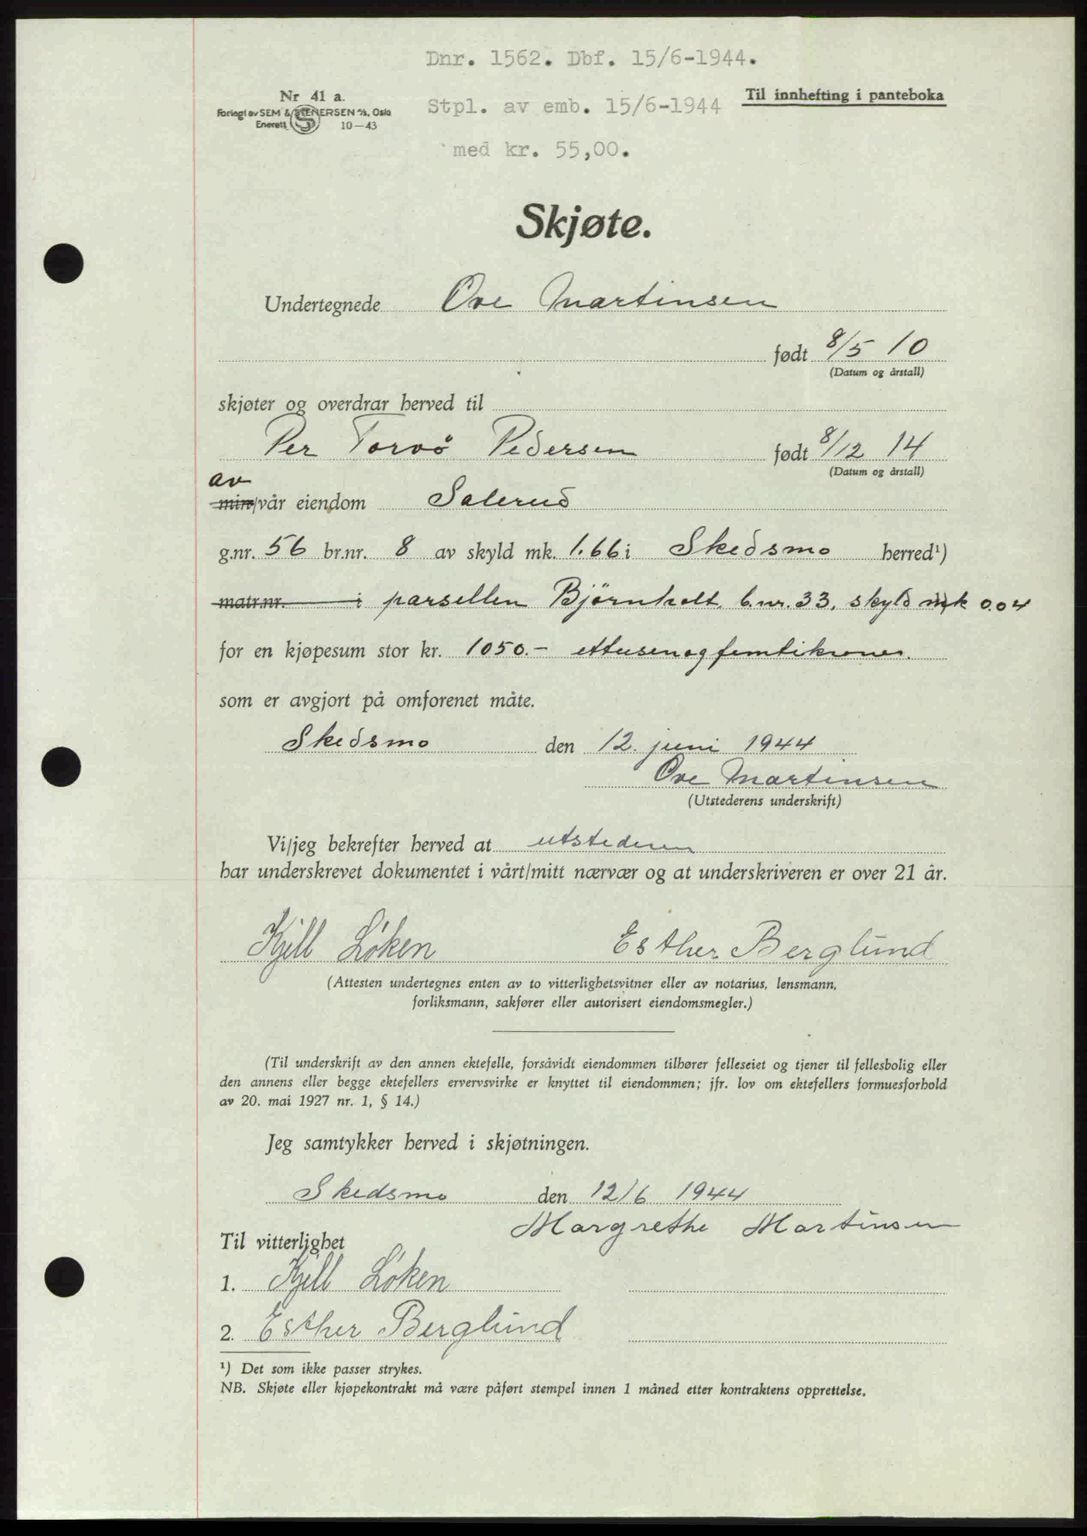 Dnr. 1562. Dbf. 15/6-1944.
Nr 41 a.
Forlagt av SEM & STENERSEN A/S, Oslo
Enerett 10—43
Stpl. av emb. 15/6-1944
Til innhefting i panteboka
med kr. 55,00.
Skjøte.
Undertegnede Ove Martinsen
født 8/5 10
(Datum og årstall)
skjøter og overdrar herved til
Per Torvø Pedersen født 8/12 14
(Datum og årstall)
av
min/vår eiendom Solerud
g.nr. 56 br.nr. 8 av skyld mk. 1.66 i Skedsmo herred¹)
matr.nr. i parsellen Bjørnholt b.nr. 33, skyld mk 0.04
for en kjøpesum stor kr. 1050.- ettusenogfemtikroner.
som er avgjort på omforenet måte.
Skedsmo den 12. juni 1944
Ove Martinsen
(Utstederens underskrift)
Vi/jeg bekrefter herved at utstederen
har underskrevet dokumentet i vårt/mitt nærvær og at underskriveren er over 21 år.
Kjell Løken Esther Berglund
(Attesten undertegnes enten av to vitterlighetsvitner eller av notarius, lensmann,
forliksmann, sakfører eller autorisert eiendomsmegler.)
(Til underskrift av den annen ektefelle, forsåvidt eiendommen tilhører felleseiet og tjener til fellesbolig eller
den annens eller begge ektefellers ervervsvirke er knyttet til eiendommen; jfr. lov om ektefellers formuesforhold
av 20. mai 1927 nr. 1, § 14.)
Jeg samtykker herved i skjøtningen.
Skedsmo den 12/6 1944
Margrethe Martinsen
Til vitterlighet
1. Kjell Løken
2. Esther Berglund
¹) Det som ikke passer strykes.
NB. Skjøte eller kjøpekontrakt må være påført stempel innen 1 måned etter kontraktens opprettelse.